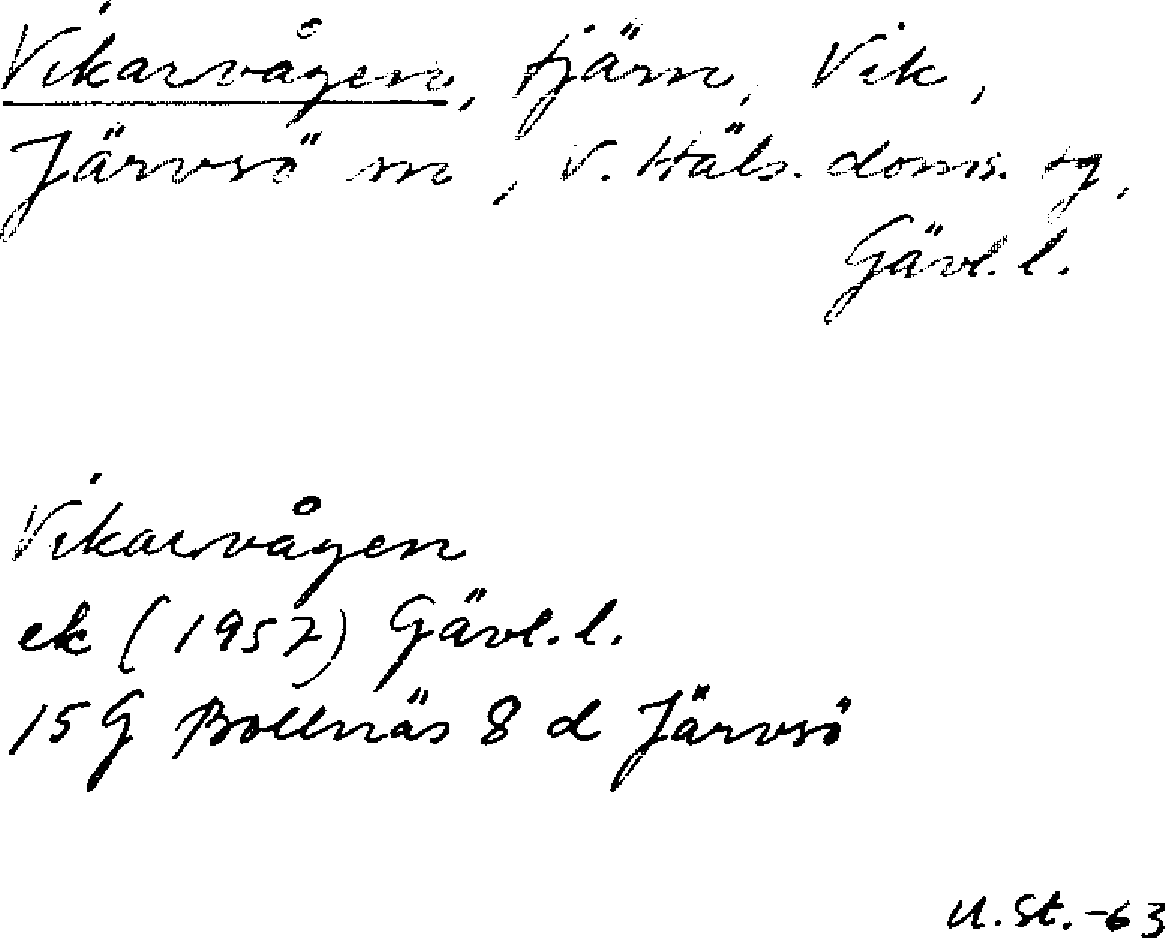 Vikarvågen, tjärn, Vik,
Järvsö sn, V. Häls. doms. tg,
Gävl. l.
Vikarvågen
ek (1957) Gävl. l.
15 G Bollnäs 8 d Järvsö
U. St. -63